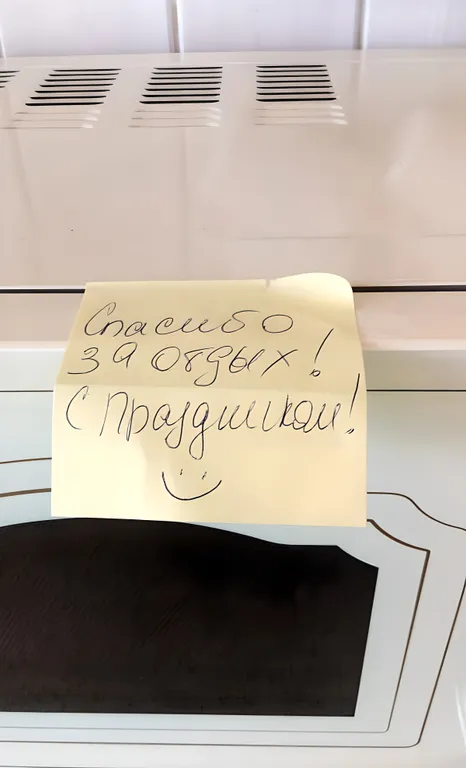 Спасибо
за отдых!
С Праздником!